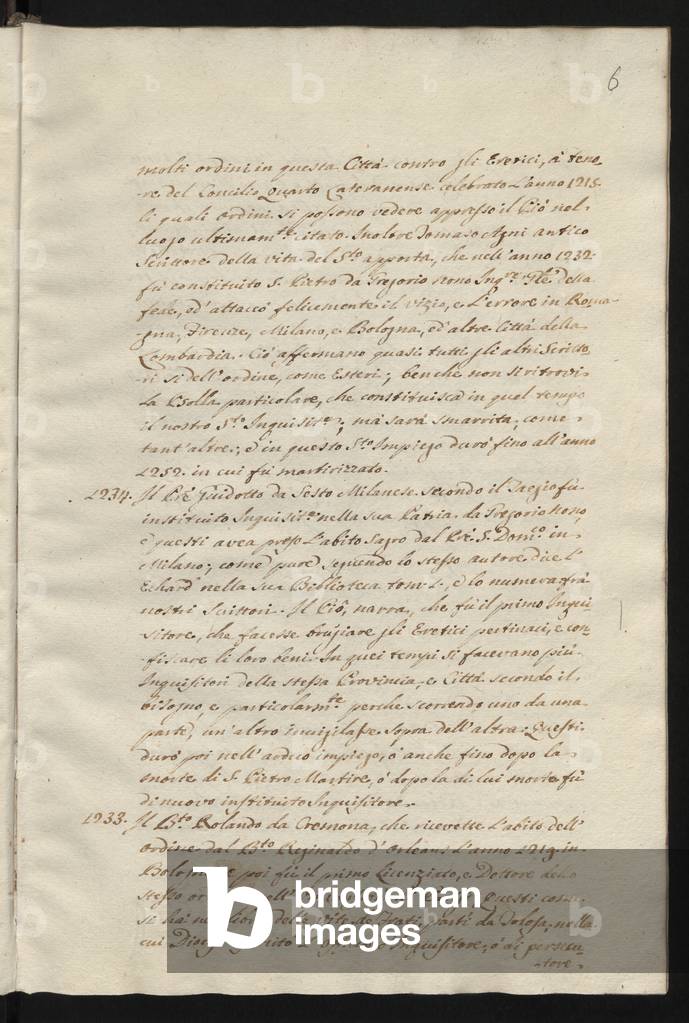 6
molti ordini in questa Città contro gli Eretici, à teno-
-re del Concilio Quarto Lateranense celebrato l'anno 1215.
li quali ordini si possono vedere appresso il Piò nel
luogo ultimam.te citato. Inoltre Tomaso Agni antico
Scrittore della vita del S.to apporta, che nell'anno 1232.
fù constituito S. Pietro da Gregorio nono Inq.re G.le della
fede, ed' attaccò felicemente il vizio, e l'errore in Roma-
-gna, Firenze, Milano, e Bologna, ed' altre Città della
Lombardia. Ciò affermano quasi tutti gli altri Scritto-
ri sì dell'ordine, come Esteri; benche non si ritrovi
la Bolla particolare, che constituisca in quel tempo
il nostro S.to Inquisit.re; mà sarà smarrita, come
tant'altre; è in questo S.to Impiego durò fino all'anno
1252. in cui fù martirizzato.
1234. Il P.re Guidotto da Sesto Milanese secondo il Taegio fù
instituito Inquisit.re nella sua Patria da Gregorio Nono,
e questi avea preso l'abito Sagro dal P.re S. Dom.co in
Milano; come pure seguendo lo stesso autore dice l'
Echard nella sua Biblioteca tom. 1., e lo numera frà
nostri Scrittori. Il Piò, narra, che fù il primo Inqui-
sitore, che facesse brugiare gli Eretici pertinaci, e con-
-fiscare li loro beni. In quei tempi si facevano più
Inquisitori della stessa Provincia, e Città secondo il
bisogno, e particolarm.te perche scorrendo uno da una
parte, un'altro invigilasse sopra dell'altra. Questi
durò poi nell'arduo impiego, ò anche fino dopo la
morte di S. Pietro Martire, ò dopo la di lui morte fù
di nuovo instituito Inquisitore.
1233. Il B.to Rolando da Cremona, che ricevette l'abito dell'
ordine dal B.to Reginaldo d'Orleans l'anno 1219. in
Bologna, e poi fù il primo Licenziato, e Dottore dello
stesso Questi come
si hà delle vite de Frati, partì da Tolosa, nella
cui Inquisitore, ò di persecu-
-tore.
bridgeman
images